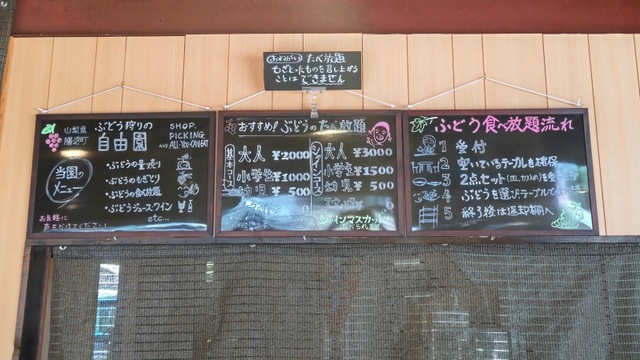 たべ放題
もぎとったものを召し上がる
ことは できません
山梨県
勝沼町
ぶどう狩りの
自由園
SHOP,
PICKING,
AND
ALL-YOU-CAN-EAT
当園の
メニュー
・ぶどうの量り売り
・ぶどうのもぎとり
・ぶどうの食べ放題
・ぶどうジュース ワイン
etc...
お気軽に
声をかけてください
おすすめ! ぶどうのたべ放題
基本コース
大人 ¥2000
小学生 ¥1000
幼児 ¥500
シャインコース
大人 ¥3000
小学生 ¥1500
幼児 ¥500
シャインマスカット
ぶどう食べ放題流れ
1 受付
2 空いているテーブルを確保
3 2点セット
4 ぶどうを選びテーブルで
5 終了後は返却棚へ